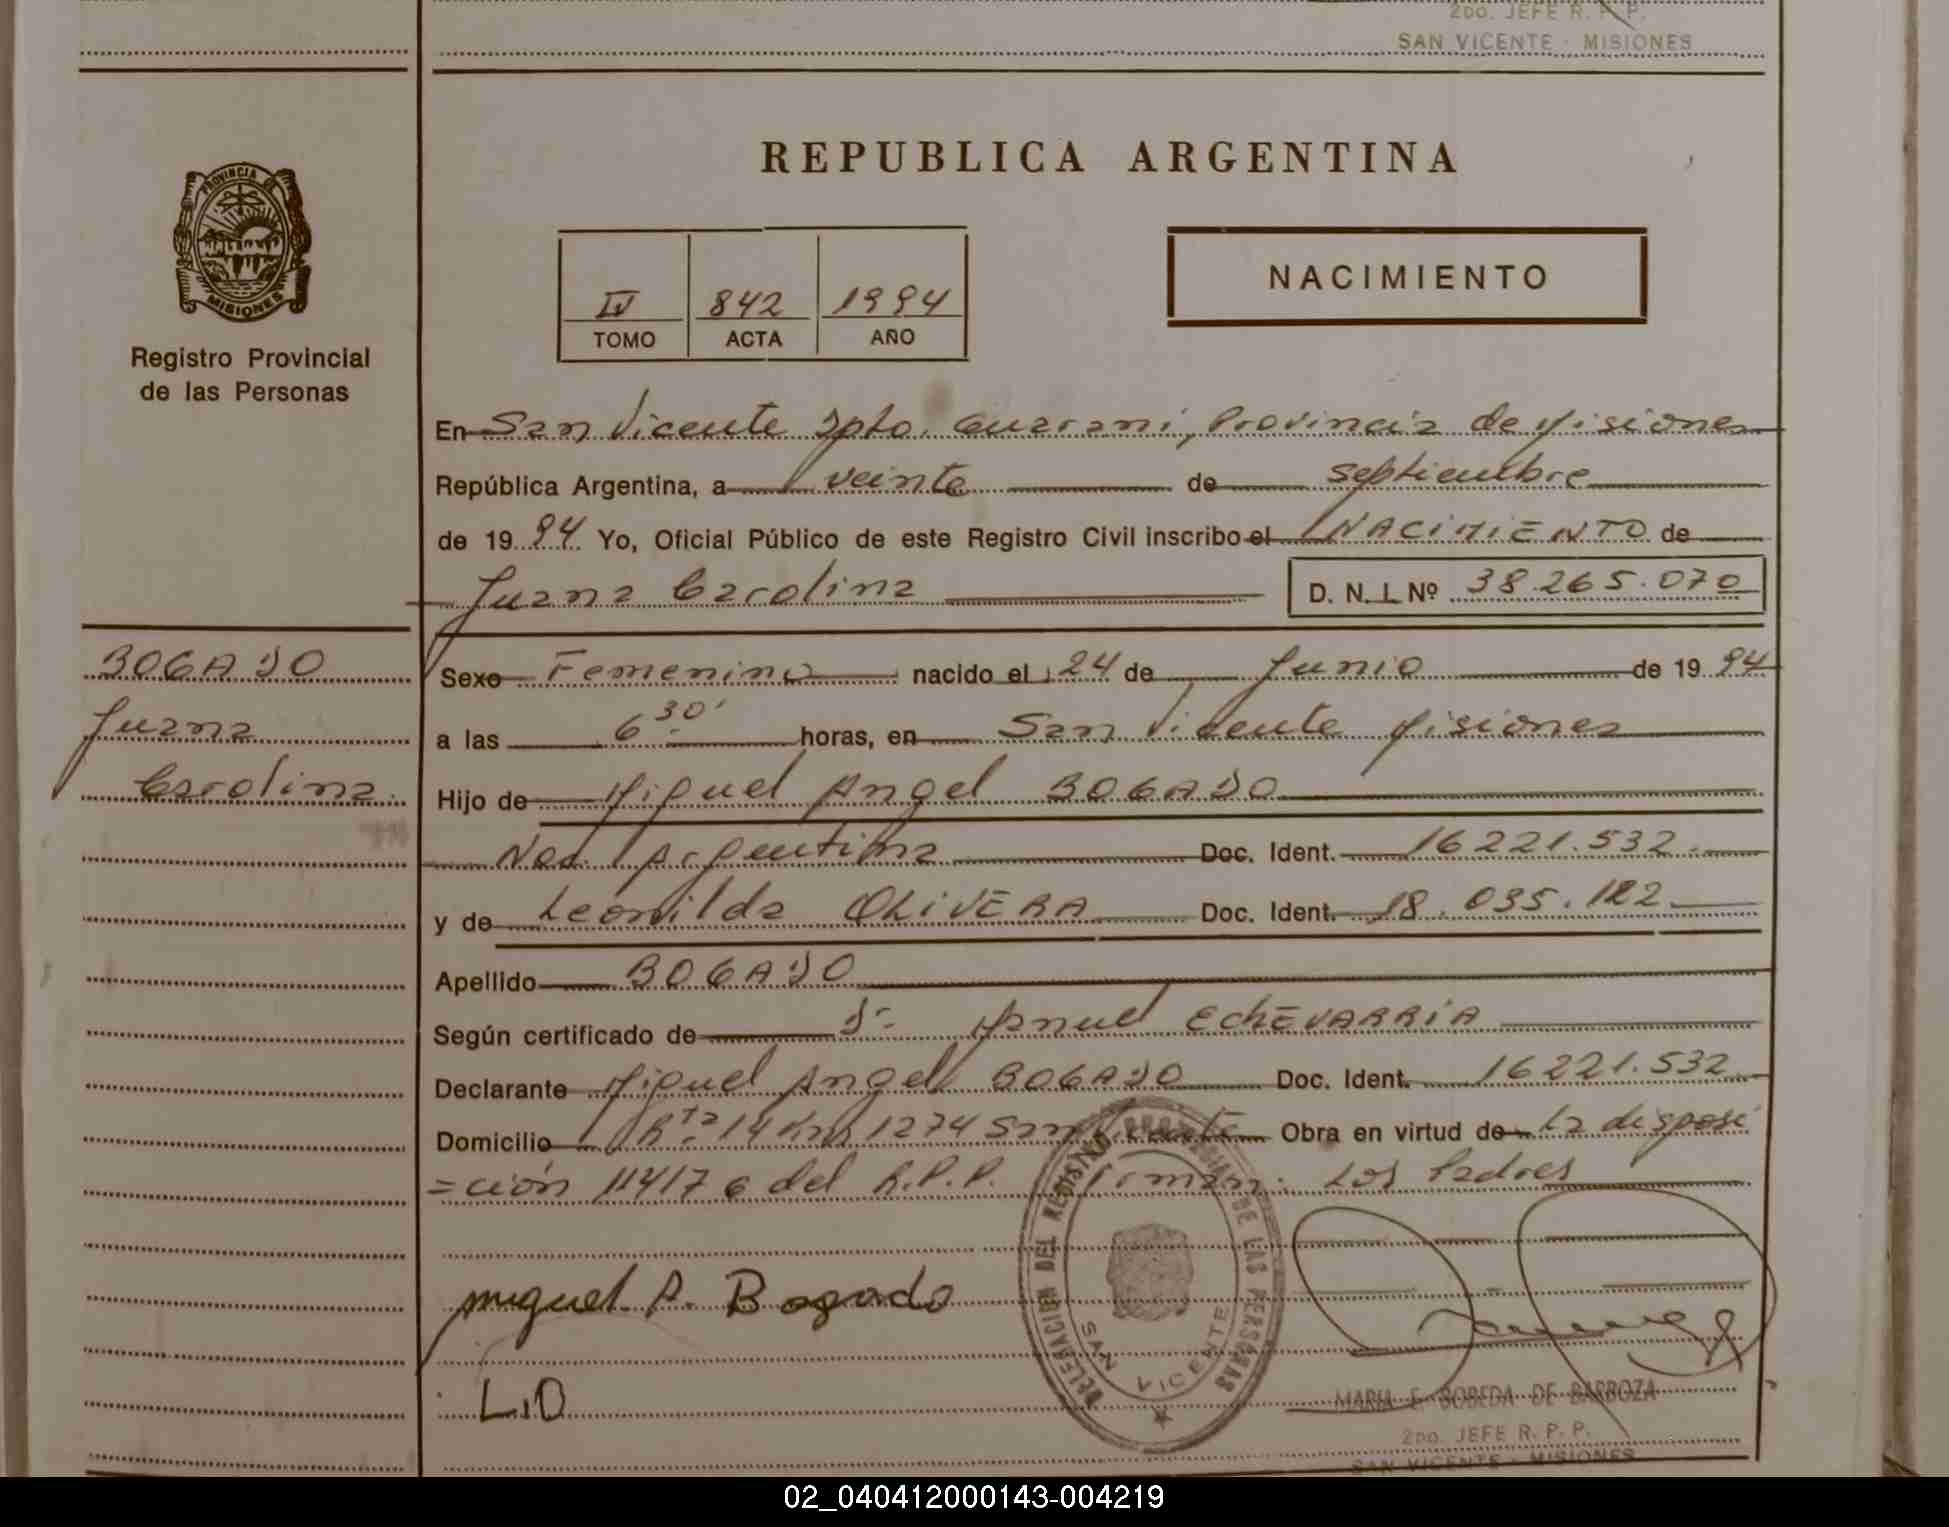 2DO. JEFE R. P. P.
SAN VICENTE - MISIONES
PROVINCIA DE
MISIONES
Registro Provincial
de las Personas
REPUBLICA ARGENTINA
IV 842 1994
TOMO ACTA AÑO
NACIMIENTO
En San Vicente Dpto. Guarani, Provincia de Misiones
República Argentina, a veinte de septiembre
de 1994 Yo, Oficial Público de este Registro Civil inscribo el NACIMIENTO de
Juana Carolina D. N. I. Nº 38.265.070
BOGADO
Juana
Carolina.
Sexo Femenino nacido el 24 de Junio de 1994
a las 6 30' horas, en San Vicente Misiones
Hijo de Miguel Angel BOGADO
Nac. Argentina Doc. Ident. 16221.532.
y de Leonilda OLIVERA Doc. Ident. 18.035.122.
Apellido BOGADO
Según certificado de Dr. Manuel ECHEVARRIA
Declarante Miguel Angel BOGADO Doc. Ident. 16221.532
Domicilio Rta 14 Km 1274 San Vicente Obra en virtud de la disposi
=ción del R.P.P. Firman: Los Padres
Miguel A. Bogado
DELEGACION DEL REGISTRO PROVINCIAL DE LAS PERSONAS
SAN VICENTE
MARIA E. BOBEDA DE BARBOZA
2DO. JEFE R. P. P.
SAN VICENTE - MISIONES
02_040412000143-004219